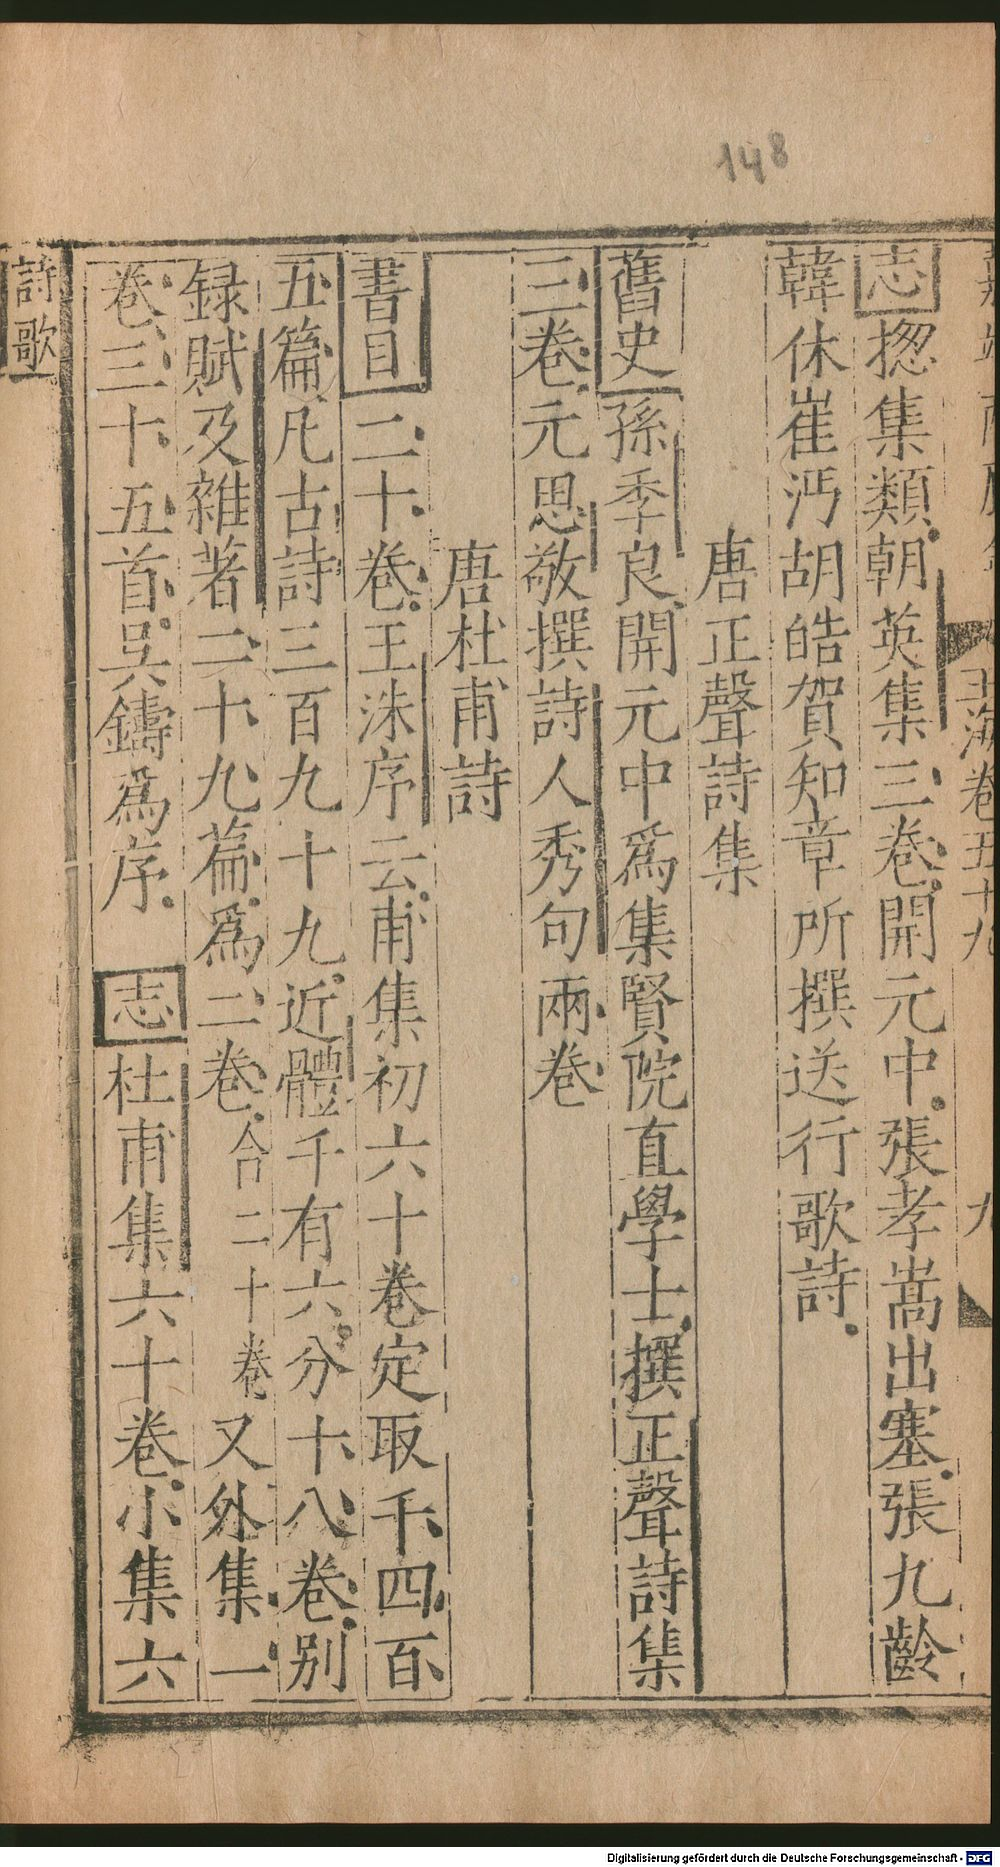 148
玉海卷五十九
九
志揔集類朝英集三卷開元中張孝嵩出塞張九齡
韓休崔沔胡皓賀知章所撰送行歌詩
唐正聲詩集
舊史孫季良開元中爲集賢院直學士撰正聲詩集
三卷元思敬撰詩人秀句兩卷
唐杜甫詩
書目二十卷王洙序云甫集初六十卷定取千四百
五篇凡古詩三百九十九近體千有六分十八卷别
録賦及雜著二十九篇爲二卷合二十卷又外集一
卷三十五首吳鑄爲序 志杜甫集六十卷小集六
詩歌
Digitalisierung gefördert durch die Deutsche Forschungsgemeinschaft - DFG